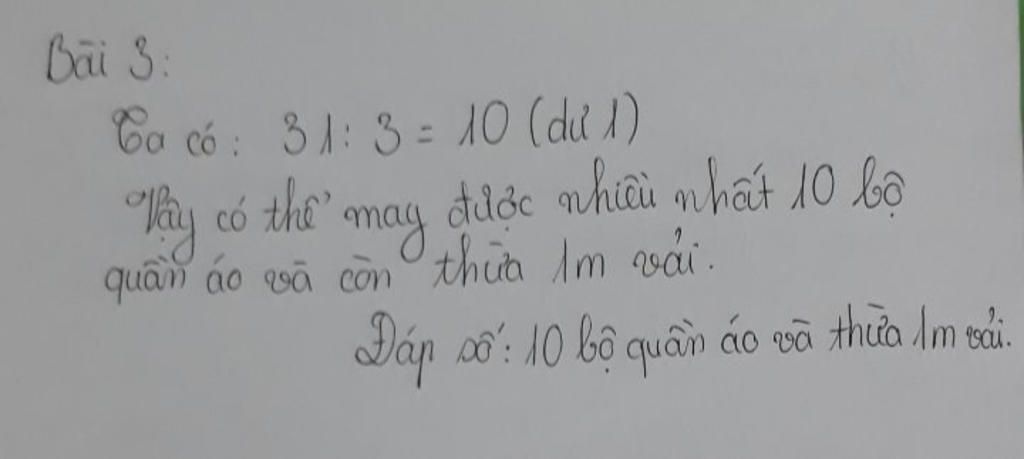 Bài 3:
Ta có: 31: 3 = 10 (dư 1)
Vậy có thể may được nhiều nhất 10 bộ
quần áo và còn thừa 1m vải.
Đáp số: 10 bộ quần áo và thừa 1m vải.